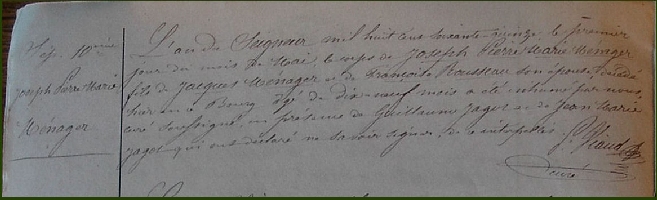 Sép.
Joseph Pierre Marie
Ménager
L'an du Seigneur mil huit cent soixante quinze le premier
jour du mois de Mai, le corps de Joseph Pierre Marie Ménager
fils de Jacques Ménager et de Françoise Rousseau son épouse, décédé
hier au Bourg âgé de dix-neuf mois a été inhumé par nous,
curé soussigné, en présence de Guillaume Jagot et de Jean Marie
Jagot qui ont déclaré ne savoir signer, de ce interpellés.